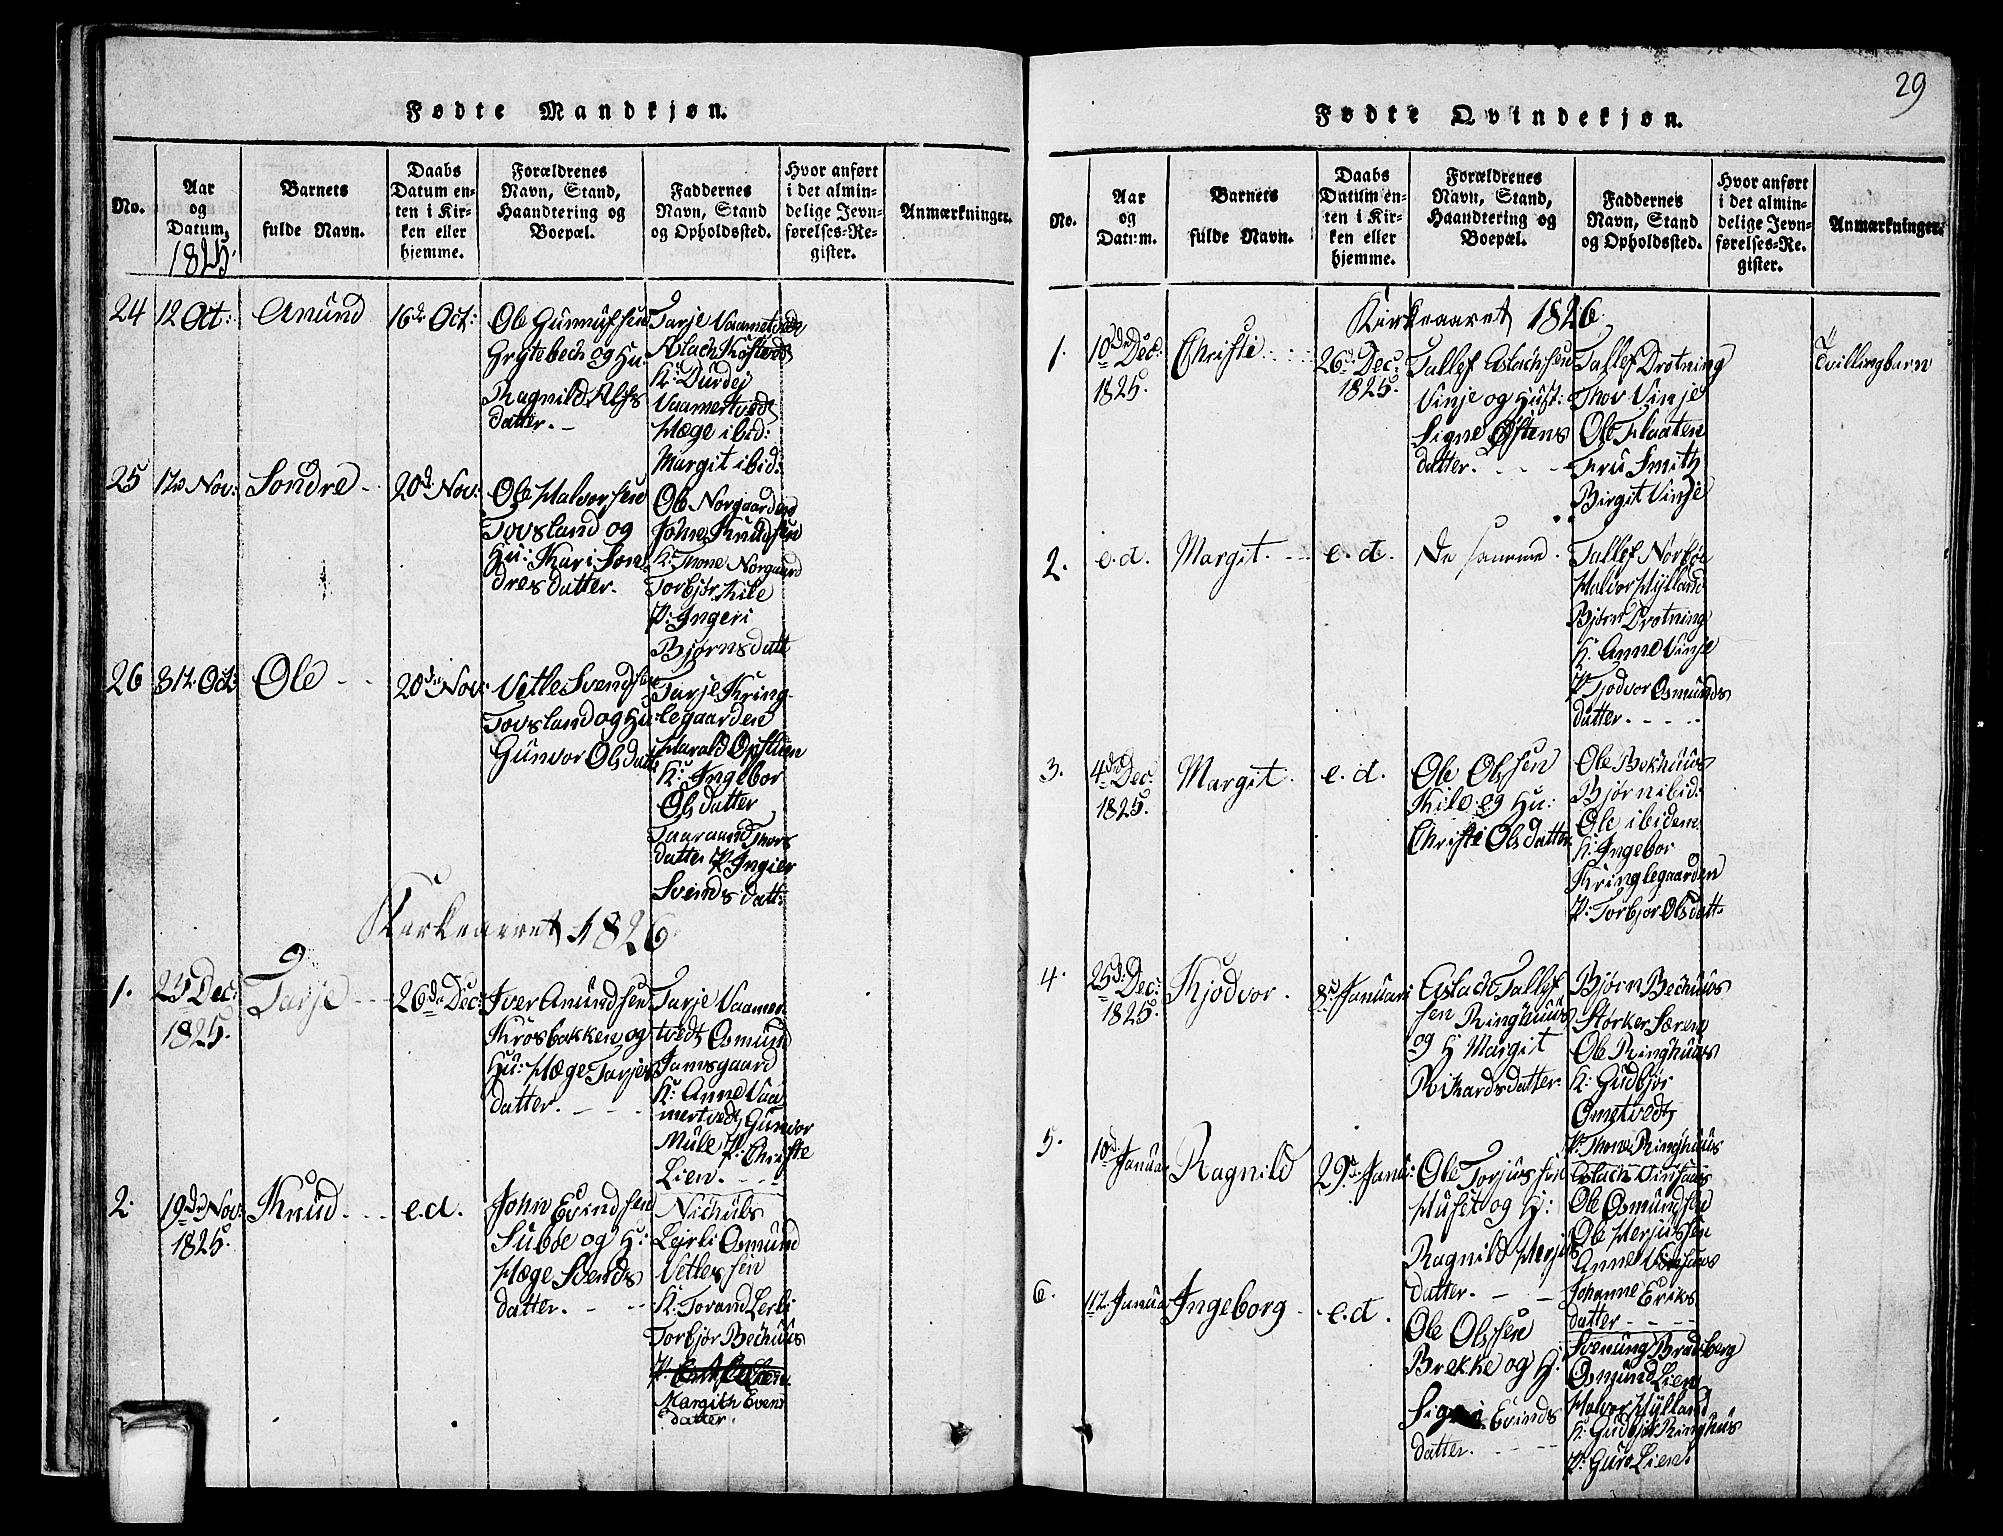 Fødte Mandkjøn.
No.
Aar
og
Datum.
1825.
Barnets
fulde Navn.
Daabs
Datum en-
ten i Kir-
ken eller
hjemme.
Forældrenes
Navn, Stand,
Haandtering og
Boepæl.
Faddernes
Navn, Stand
og Opholdssted.
Hvor anført
i det almin-
delige Jevn-
førelses-Re-
gister.
Anmærkninger.
24
12 Oct:
Anund
16de Oct:
Ole Gunnufsen
Grytebech og Hu:
Ragnild Alfs
datter. -
Tarje Vaamertvedt
Aslach
K: Durdej
Vaamertvedt
Hæge ibid:
Margit ibid:
25
12 Nov:
Sondre -
20d Nov:
Ole Halvorsen
Tovsland og
Hu: Kari Son
dres datter.
Ole Norgaarden
John Knudsen
K: Thone Norgaard
Torbjør Kile
P: Ingeri
Bjørnsdatt
26
Oct:
Ole - -
20de Nov:
Vetle Svendsen
Tovsland og Hu
Gunvor Olsdatt
Tarje Kring-
legaarden
Harald
K: Ingebor
Olsdatter
Taaraand Thors
datter P: Ingier
Svends datt:
Kirkeaaret 1826
1.
23 Dec:
1825.
Tarje - - -
26de Dec:
Iver Anundsen
Krosbakken og
Hu: Hæge Tarjes
datter. - - -
Tarje Vaamer
tvedt Osmund
Jamsgaard
K: Anne Vaa
mertvedt, Gunvor
Mule P: Christe
Lien. - - -
2.
19de Nov:
1825.
Knud. - -
e.d.
John Evindsen
Subøe og H:
Hæge Svends
datter. - - -
Nichuls
Lejrli Osmund
Vetlessen
K: Torand Lerli
Torbjør Bechuus
P:
Margith Evens
datter.
29
Fødte Qvindekjøn.
No.
Aar
og
Datum.
Barnets
fulde Navn.
Daabs
Datum en-
ten i Kir-
ken eller
hjemme.
Forældrenes
Navn, Stand,
Haandtering og
Boepæl.
Faddernes
Navn, Stand
og Opholdssted.
Hvor anført
i det almin-
delige Jevn-
førelses-Re-
gister.
Anmærkninger.
Kirkeaaret 1826.
1.
10de Dec:
1825.
Christi
26d Dec:
1825.
Tallef Aslachsen
Vinje og Hust:
Signe Østens
datter. - - -
Tallef Drotning
Thor Vinje
Ole Flaaten
Fru Smith
Birgit Vinje
Tvillingbarn
2.
e.d.
Margit. - -
e.d.
De samme.
Tallef Norbøe
Halvor Hylland
Bjørn Drotning
K: Anne Vinje
P: Tjodvor Osmunds
datter. - - - -
3.
4de Dec:
1825.
Margit.
e.d.
Ole Olssen
Kile og Hu:
Christi Olsdatter
Ole Bekhuus
Bjørn ibid:
Ole ibidem
K: Ingebor
Kringlegaarden
P: Torbjor Olsdatt.
4.
25d Dec:
1825.
Kjødvor.
8d Januari
Aslach Tallef
sen Ringhuus
og H Margit
Rikardsdatter
Bjørn Bechuus
Størker Særen
Ole Ringhuus
K: Gudbjør
Omtvedt
P: Thone Ringhuus
5.
10d Janua
Ragnild
29d Janu:
Ole Torjussen
Huset og H:
Ragnild Herjus
datter. - -
Aslach
Ole Osmundsen
Ole Herjussen
Anne
Johanne Eriks
datter - - - -
6.
Janua
Ingeborg
e.d.
Ole Olssen
Brekke og H:
Signe Evinds
datter. - - -
Svenung Bradsberg
Osmund Lien
Halvor Hylland
K: Gudbjør Ringhus
P: Guro Lien.